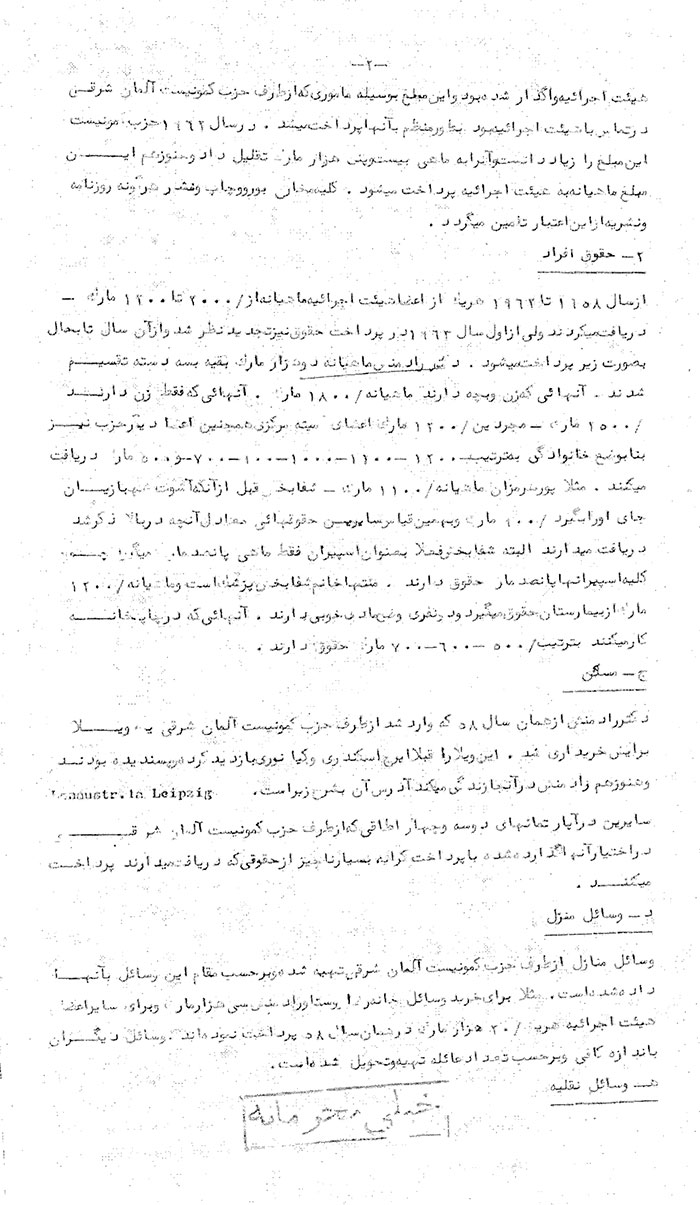 -۲-
هیئت اجرائیه واگذار شده بود و این مبلغ بوسیله ماموری که از طرف حزب کمونیست آلمان شرقی
در تماس با هیئت اجرائیه بود بطور منظم به آنها پرداخت میشد . در سال ۱۹۶۲ حزب کمونیست
این مبلغ را زیاد دانست و آنرا به ماهی بیست و پنج هزار مارک تقلیل داد و هنوز هم ایـــن
مبلغ ماهیانه به هیئت اجرائیه پرداخت میشود . کلیه مخارج بورو و چاپ و نشر هرگونه روزنامه
و نشریه از این اعتبار تامین میگردد .
۲- حقوق افراد
از سال ۱۹۵۸ تا ۱۹۶۲ هریک از اعضا هیئت اجرائیه ماهیانه از /۲۰۰۰ تا ۱۲۰۰ مارک -
دریافت میکردند ولی از اول سال ۱۹۶۳ در پرداخت حقوق نیز تجدید نظر شد و از آن سال تا بحال
بصورت زیر پرداخت میشود . دکتر رادمنش ماهیانه دو هزار مارک بقیه بسه دسته تقسیـــم
شدند . آنهائی که زن و بچه دارند ماهیانه /۱۸۰۰ مارک . آنهائی که فقط زن دارنـــد
/۲۵۰۰ مارک - مجردین /۱۲۰۰ مارک اعضای کمیته مرکزی همچنین اعضا دیگر حزب نیـــز
بنا بوضع خانوادگی بترتیب ۱۲۰۰ -۱۱۰۰ -۱۰۰۰ -۷۰۰ و ۵۰۰ مارک دریافت
میکنند . مثلا پورهرمزان ماهیانه /۱۱۰۰ مارک - شفابخش قبل از آنکه آشوت شهبازیـــان
جای او را بگیرد مارک و بهمین قیاس سایرین حقوقهائی معادل آنچه در بالا ذکر شد
دریافت میدارند البته شفابخش فعلا بعنوان اسپیران فقط ماهی پانصد مارک میگیرد
کلیه اسپیرانها پانصد مارک حقوق دارند . منتها خانم شفابخش پزشک است و ماهیانه /۱۲۰۰
مارک از بیمارستان حقوق میگیرد و دو نفری وضع مادی خوبی دارند . آنهائی که در چاپخانـــه
کار میکنند بترتیب /۵۰۰ -۶۰۰ -۷۰۰ مارک حقوق دارند .
ج- مسکن
دکتر رادمنش از همان سال ۵۸ که وارد شد از طرف حزب کمونیست آلمان شرقی یک ویـــلا
برایش خریداری شد . این ویلا را قبلا ایرج اسکندری و کیا نوری بازدید کرده و پسندیده بودنـــد
و هنوز هم رادمنش در آنجا زندگی میکند آدرس آن بشرح زیر است . Leipzig
سایرین در آپارتمانهای دو سه و چهار اطاقی که از طرف حزب کمونیست آلمان شرقـــی
در اختیار آنها گذارده شده با پرداخت کرایه بسیار ناچیز از حقوقی که دریافت میدارند پرداخـــت
میکننـــد .
د- وسائل منزل
وسائل منازل از طرف حزب کمونیست آلمان شرقی تهیه شده و بر حسب مقام این وسائل به آنهـــا
داده شده است . مثلا برای خرید وسائل خانه رادمنش سی هزار مارک و برای سایر اعضا
هیئت اجرائیه هریک /۲۰ هزار مارک در همان سال ۵۸ پرداخت نموده اند . وسائل دیگـــران
باندازه کافی و بر حسب تعداد عائله تهیه و تحویل شده است .
هـ- وسائل نقلیه
خیلی محرمانه